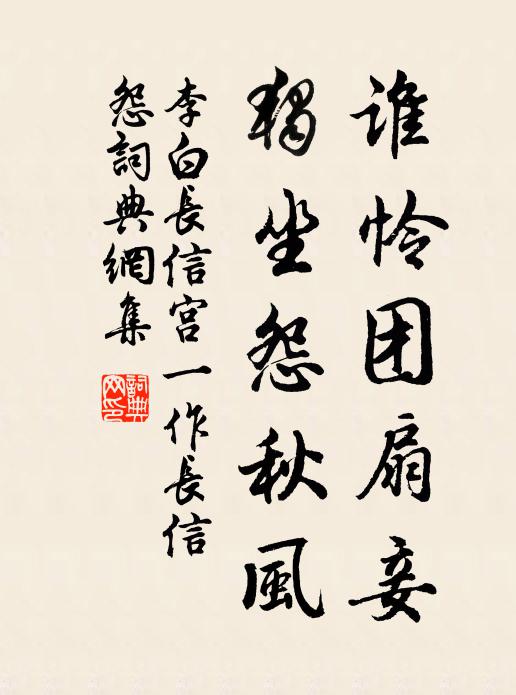 谁怜团扇妾
独坐怨秋風
李白長信宮一作長信
怨詞典網集
詞典网印